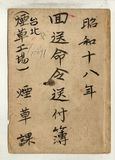 昭和十八年
回送命令送付簿
煙草課
台北
(煙草工場)